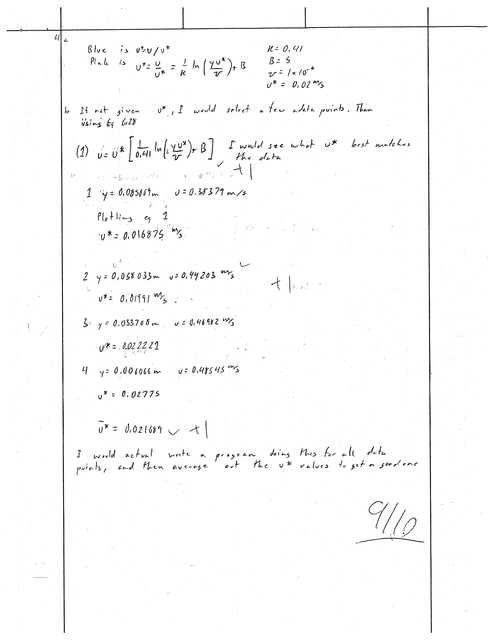 4 a
Blue is u⁺=u/u*
Pink is u⁺= u/u* = 1/κ ln(yu*/ν)+ B
κ = 0.41
B = 5
ν = 1×10⁻⁶
u* = 0.02 m/s
b If not given u*, I would select a few adata points. Then
using Eq 6.28
(1) u= u* [1/0.41 ln(yu*/ν)+ B] I would see what u* best matches
the data
✓ +1
1 y = 0.085869m u= 0.38379 m/s
Plotting eq 1
u* = 0.016875 m/s
2 y = 0.058033m u= 0.44203 m/s ✓
u* = 0.01991 m/s. +1
3 y = 0.033708m u= 0.46982 m/s
u* = 0.022221
4 y = 0.006066m u= 0.48545 m/s
u* = 0.02775
ū* = 0.021689 ✓ +1
I would actual write a program doing this for all data
points, and then average out the u* values to get a good one
9/10